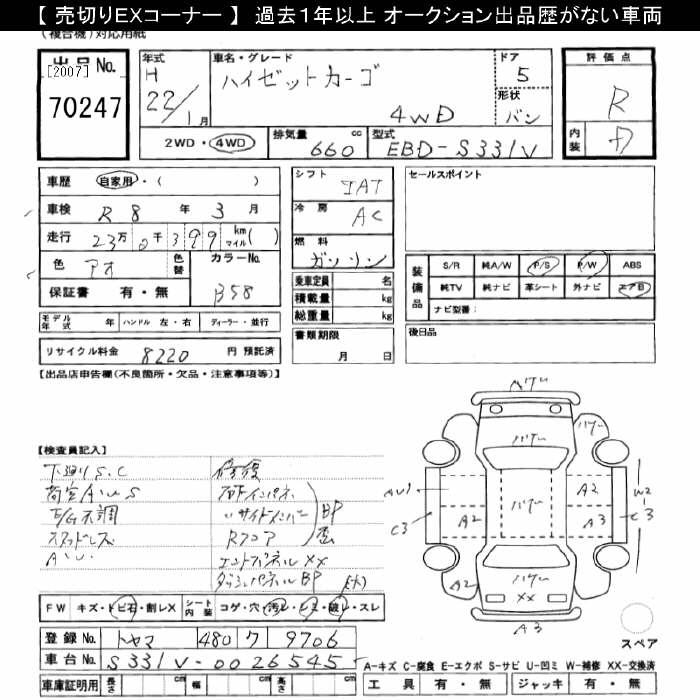 【 売切りEXコーナー 】 過去１年以上 オークション出品歴がない車両
(複合機)対応用紙
出品 No.
[2007]
70247
年式
H
22/1月
車名・グレード
ハイゼットカーゴ
4WD
ドア
5
形状
バン
評価点
R
内装
D
2WD・4WD
排気量
660
cc
型式
EBD-S331V
車歴
自家用・( )
車検
R 8 年 3 月
走行
23万 0千 399
km
マイル( )
色
アオ
色替
カラーNo.
B58
保証書 有・無
モデル年式 年
ハンドル 左・右
ディーラー・並行
リサイクル料金 8220 円 預託済
シフト
IAT
冷房
AC
燃料
ガソリン
乗車定員 名
積載量 kg
総重量 kg
書類期限
月 日
セールスポイント
装備品
S/R 純A/W P/S P/W ABS
純TV 純ナビ 革シート 外ナビ エアB
ナビ型番：
後日品
【出品店申告欄(不良箇所・欠品・注意事項等)】
【検査員記入】
下廻りS.C
荷室AUS
E/G不調
スタッドレス
A.U.
修復
Rフロア
エンドパネルXX
BP
歪
BP(大)
バゲー
バゲー
バゲー
バゲー
バゲー
XX
AU1
C3
A2
A2
A3
W2
C3
A2
A3
スペア
FW キズ・トビ石・割レX
シート内装 コゲ・穴・汚レ・シミ・破レ・スレ
登録 No. トヤマ 480 ワ 9706
車台 No. S331V-0026545
車庫証明用 長さ cm 幅 cm 高さ cm
A-キズ C-腐食 E-エクボ S-サビ U-凹ミ W-補修 XX-交換済
工具 有・無 ジャッキ 有・無